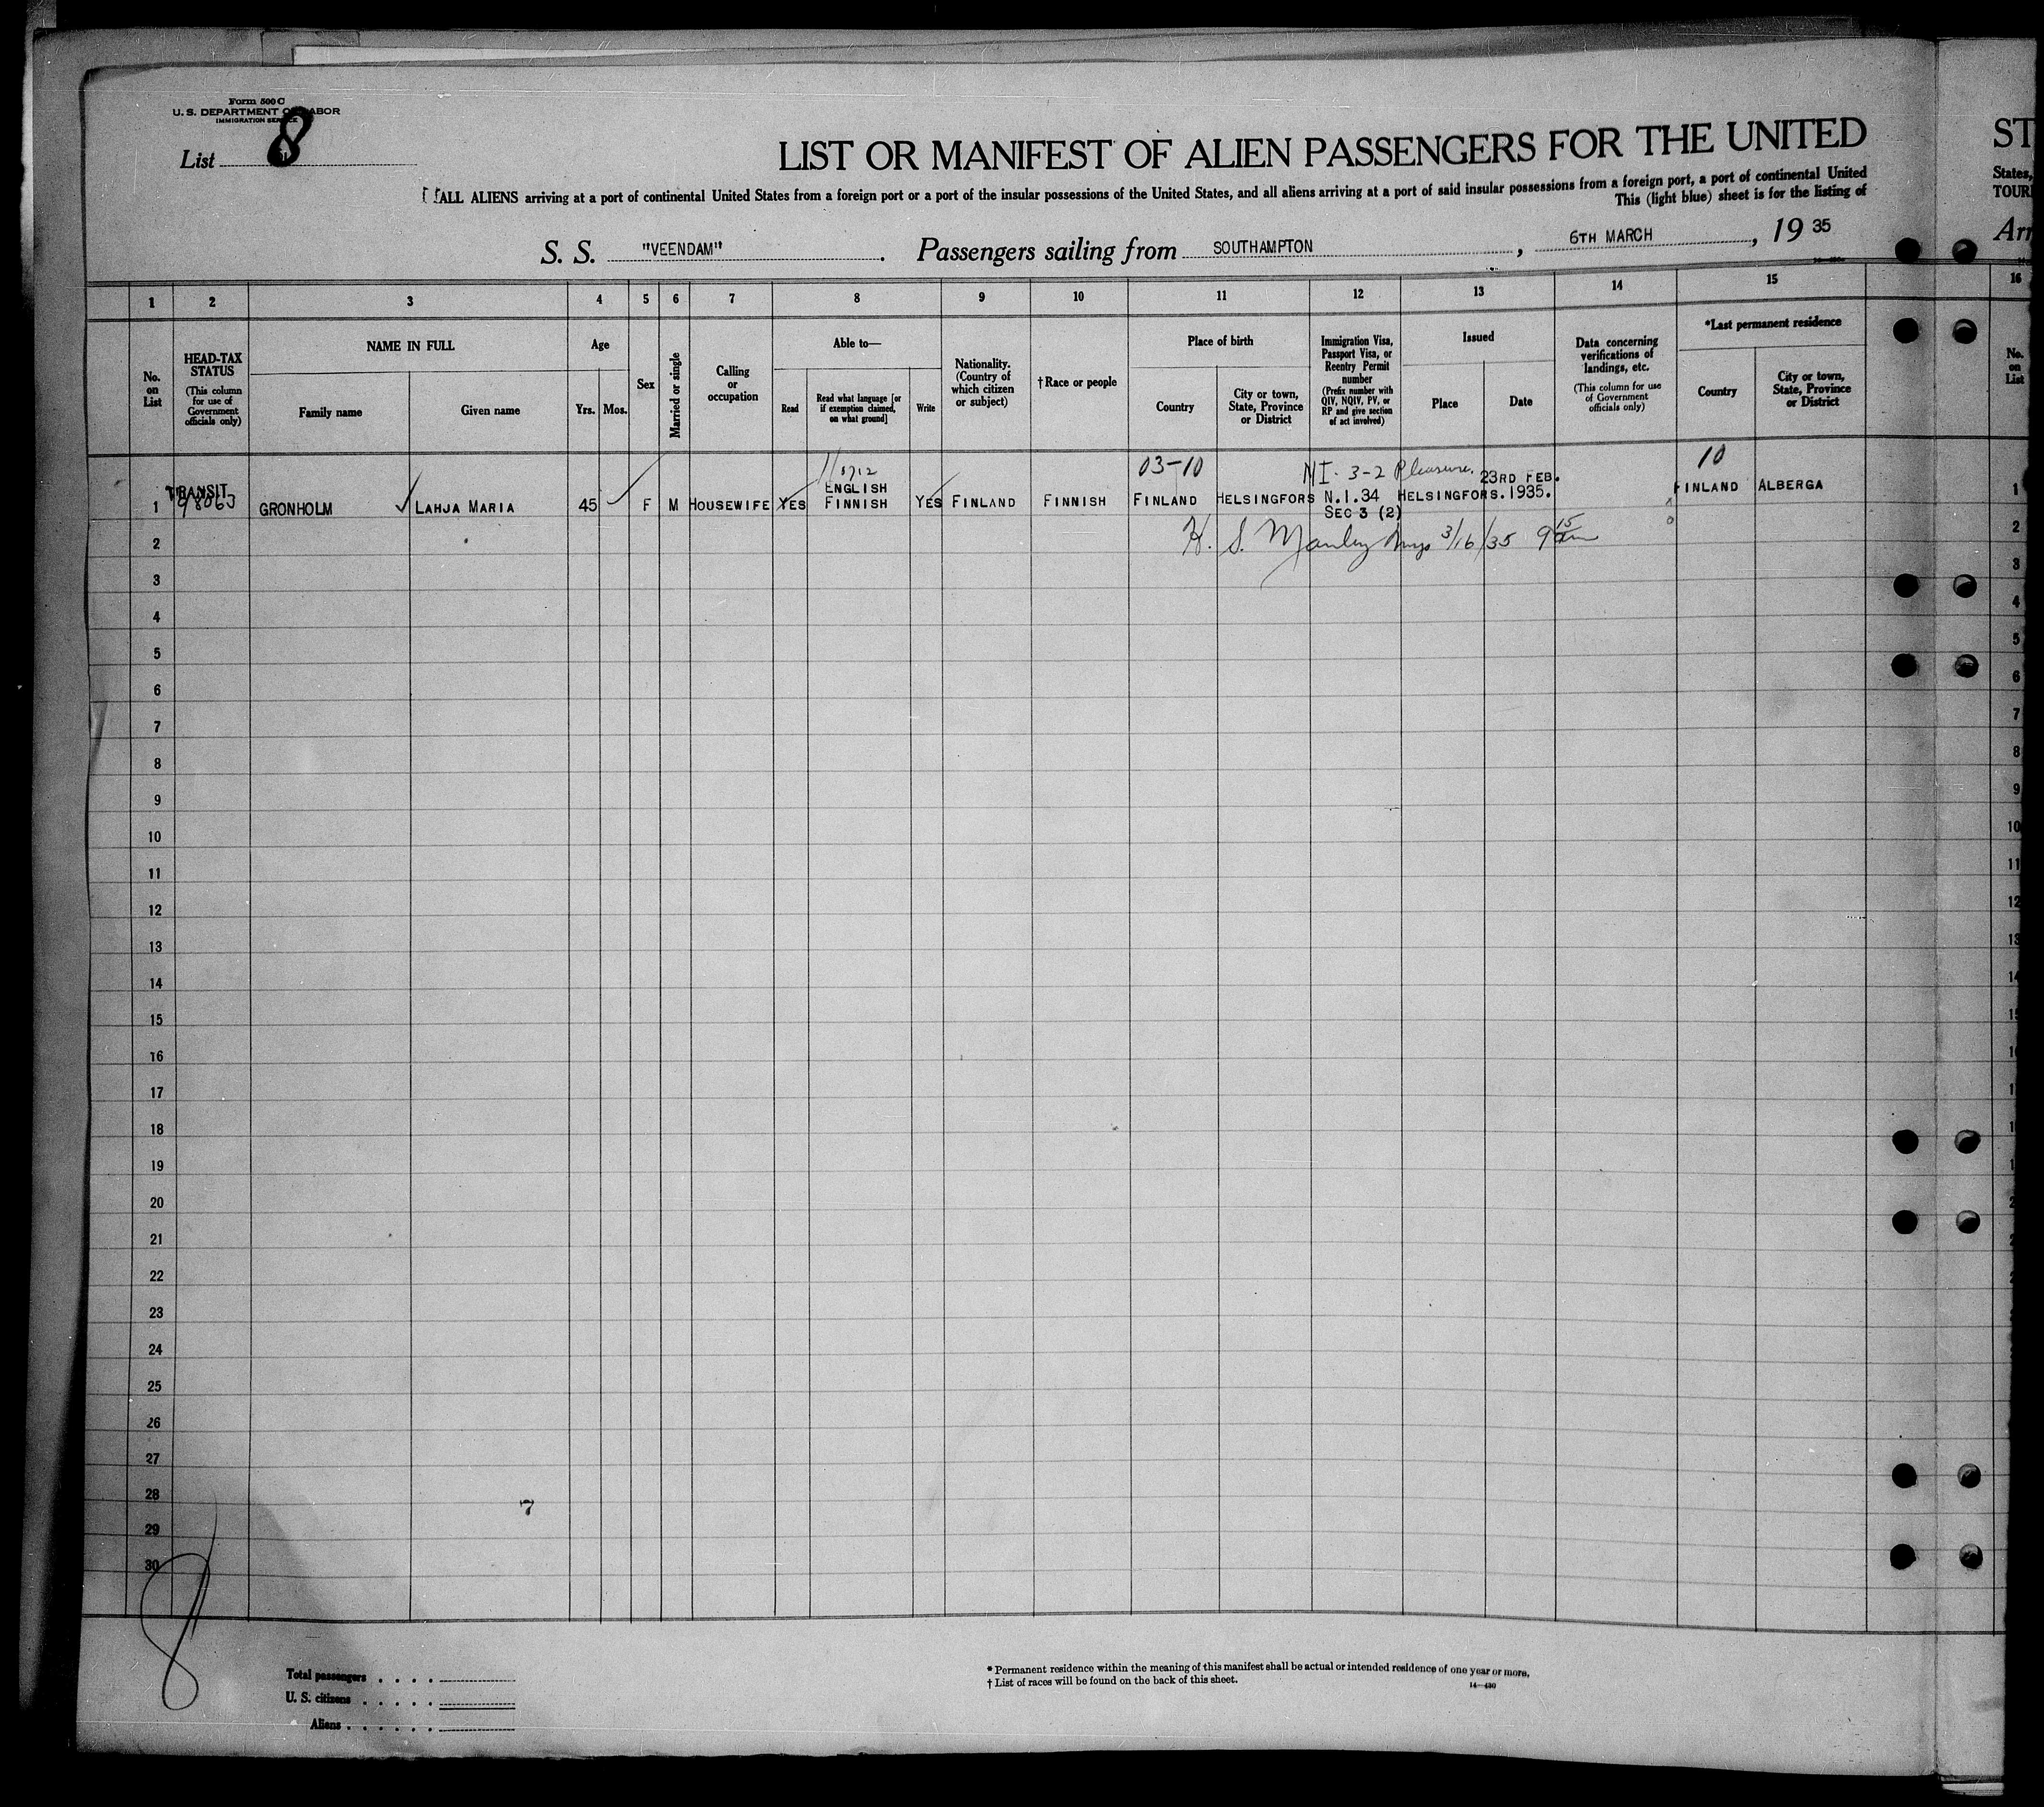 Form 500 C
U. S. DEPARTMENT OF LABOR
IMMIGRATION SERVICE
List 8
LIST OR MANIFEST OF ALIEN PASSENGERS FOR THE UNITED
ALL ALIENS arriving at a port of continental United States from a foreign port or a port of the insular possessions of the United States, and all aliens arriving at a port of said insular possessions from a foreign port, a port of continental United
This (light blue) sheet is for the listing of
S. S. "VEENDAM". Passengers sailing from SOUTHAMPTON, 6TH MARCH, 19 35
ST
States,
TOUR
Arr
1 2 3 4 5 6 7 8 9 10 11 12 13 14 15 16
No. on List
HEAD-TAX STATUS (This column for use of Government officials only)
NAME IN FULL
Family name
Given name
Age
Yrs.
Mos.
Sex
Married or single
Calling or occupation
Able to—
Read
Read what language [or if exemption claimed, on what ground]
Write
Nationality. (Country of which citizen or subject)
†Race or people
Place of birth
Country
City or town, State, Province or District
Immigration Visa, Passport Visa, or Reentry Permit number (Prefix number with QIV, NQIV, PV, or RP and give section of act involved)
Issued
Place
Date
Data concerning verifications of landings, etc. (This column for use of Government officials only)
*Last permanent residence
Country
City or town, State, Province or District
No. on List
03-10 NI. 3-2 Pleasure. 10
TRANSIT ENGLISH 23RD FEB.
1 98063 GRONHOLM LAHJA MARIA 45 F M HOUSEWIFE YES FINNISH YES FINLAND FINNISH FINLAND HELSINGFORS N.I.34 HELSINGFORS. 1935. FINLAND ALBERGA 1
SEC 3 (2)
2 H. S. Manley 3/16/35 9 15 am 2
3 3
4 4
5 5
6 6
7 7
8 8
9 9
10 10
11 11
12 12
13 13
14 14
15
16
17
18
19
20
21
22
23
24
25
26
27
28 7
29
30
8
Total passengers
U. S. citizens
Aliens
* Permanent residence within the meaning of this manifest shall be actual or intended residence of one year or more.
† List of races will be found on the back of this sheet.
14—430